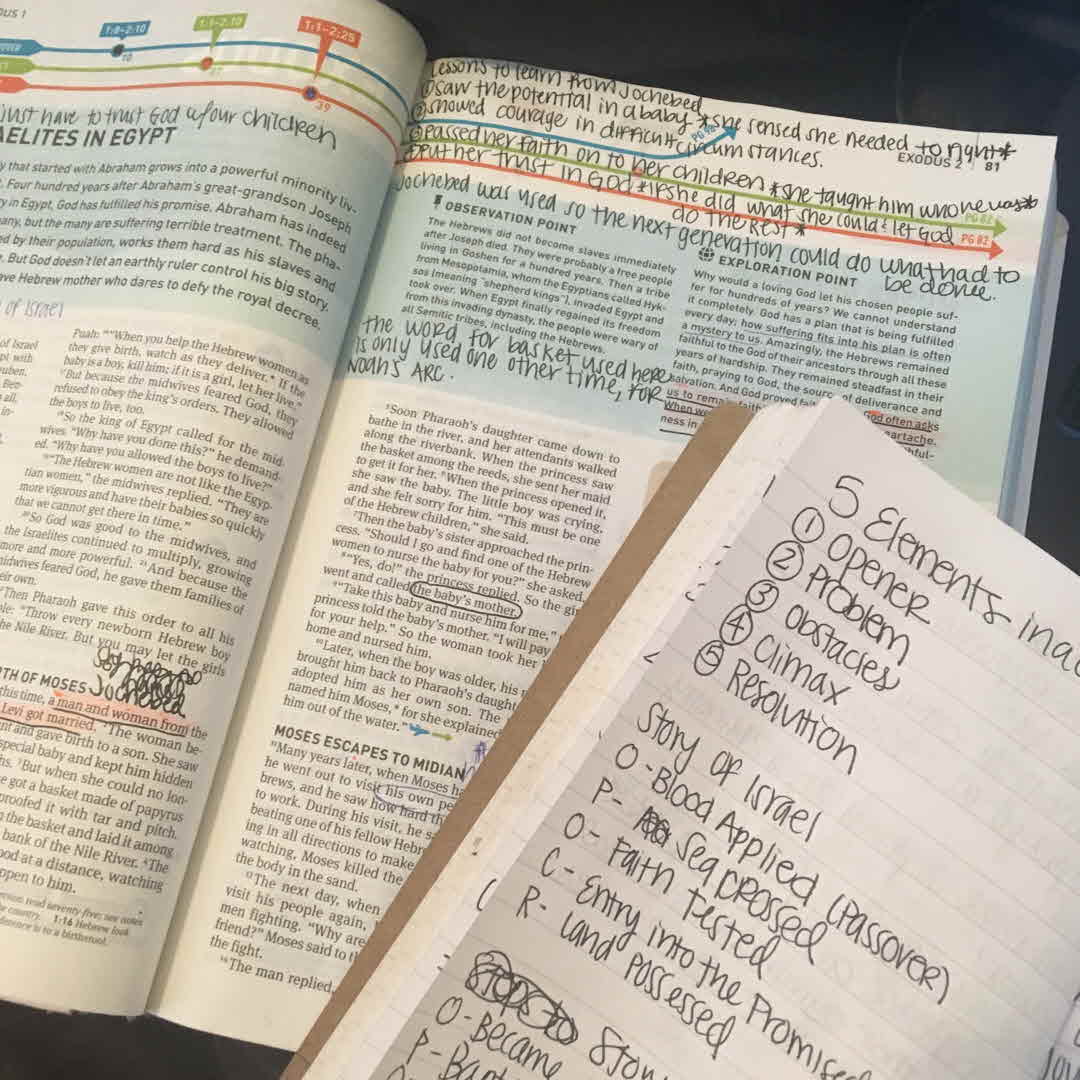 1:8-2:10
1:1-2:10
1:1-2:25
39
just have to trust God w/our children
AELITES IN EGYPT
y that started with Abraham grows into a powerful minority liv-
. Four hundred years after Abraham's great-grandson Joseph
ry in Egypt, God has fulfilled his promise. Abraham has indeed
any, but the many are suffering terrible treatment. The pha-
ed by their population, works them hard as his slaves and
. But God doesn't let an earthly ruler control his big story.
ve Hebrew mother who dares to defy the royal decree.
of Israel
Puah: "When you help the Hebrew women as
they give birth, watch as they deliver.* If the
baby is a boy, kill him; if it is a girl, let her live."
But because the midwives feared God, they
refused to obey the king's orders. They allowed
the boys to live, too.
So the king of Egypt called for the mid-
wives. "Why have you done this?" he demand-
ed. "Why have you allowed the boys to live?"
"The Hebrew women are not like the Egyp-
tian women," the midwives replied. "They are
more vigorous and have their babies so quickly
that we cannot get there in time."
So God was good to the midwives, and
the Israelites continued to multiply, growing
more and more powerful. And because the
midwives feared God, he gave them families of
eir own.
Then Pharaoh gave this order to all his
le: "Throw every newborn Hebrew boy
he Nile River. But you may let the girls
Jochebed
TH OF MOSES
this time, a man and woman from the
Levi got married. The woman be-
nt and gave birth to a son. She saw
special baby and kept him hidden
hs. But when she could no lon-
e got a basket made of papyrus
proofed it with tar and pitch.
n the basket and laid it among
bank of the Nile River. The
ood at a distance, watching
ppen to him.
1:16 Hebrew look
Lessons to learn from Jochebed
① saw the potential in a baby *she sensed she needed to fight*
② showed courage in difficult circumstances.
③ passed her faith on to her children *she taught him who he was*
④ put her trust in God *if she did what she could & let God
do the rest*
EXODUS 2
81
PG 82
PG 82
Jochebed was used so the next generation could do what had to
be done.
OBSERVATION POINT
The Hebrews did not become slaves immediately
after Joseph died. They were probably a free people
living in Goshen for a hundred years. Then a tribe
from Mesopotamia, whom the Egyptians called Hyk-
sos (meaning "shepherd kings"), invaded Egypt and
took over. When Egypt finally regained its freedom
from this invading dynasty, the people were wary of
all Semitic tribes, including the Hebrews.
the word for basket used here
is only used one other time, for
Noah's Arc.
EXPLORATION POINT
Why would a loving God let his chosen people suf-
fer for hundreds of years? We cannot understand
it completely. God has a plan that is being fulfilled
every day; how suffering fits into his plan is often
a mystery to us. Amazingly, the Hebrews remained
faithful to the God of their ancestors through all these
years of hardship. They remained steadfast in their
faith, praying to God, the source of deliverance and
salvation. And God proved
God often asks
us to remain
When we
ness in
Soon Pharaoh's daughter came down to
bathe in the river, and her attendants walked
along the riverbank. When the princess saw
the basket among the reeds, she sent her maid
to get it for her. When the princess opened it,
she saw the baby. The little boy was crying,
and she felt sorry for him. "This must be one
of the Hebrew children," she said.
Then the baby's sister approached the prin-
cess. "Should I go and find one of the Hebrew
women to nurse the baby for you?" she asked.
"Yes, do!" the princess replied. So the gi
went and called the baby's mother.
"Take this baby and nurse him for me,"
princess told the baby's mother. "I will pay
for your help." So the woman took her
home and nursed him.
Later, when the boy was older, his
brought him back to Pharaoh's daught
adopted him as her own son. The
named him Moses,* for she explained
him out of the water."
MOSES ESCAPES TO MIDIAN
Many years later, when Moses ha
he went out to visit his own pe
brews, and he saw how hard th
to work. During his visit, he sa
beating one of his fellow Hebr
ing in all directions to make
watching, Moses killed the
the body in the sand.
The next day, when
visit his people again,
men fighting. "Why are
friend?" Moses said to t
the fight.
The man replied,
5 Elements in a
① Opener
② Problem
③ Obstacles
④ Climax
⑤ Resolution
Story of Israel
O - Blood Applied (Passover)
P - Sea Crossed
O - Faith Tested
C - Entry into the Promised
R - Land Possessed
O - Became